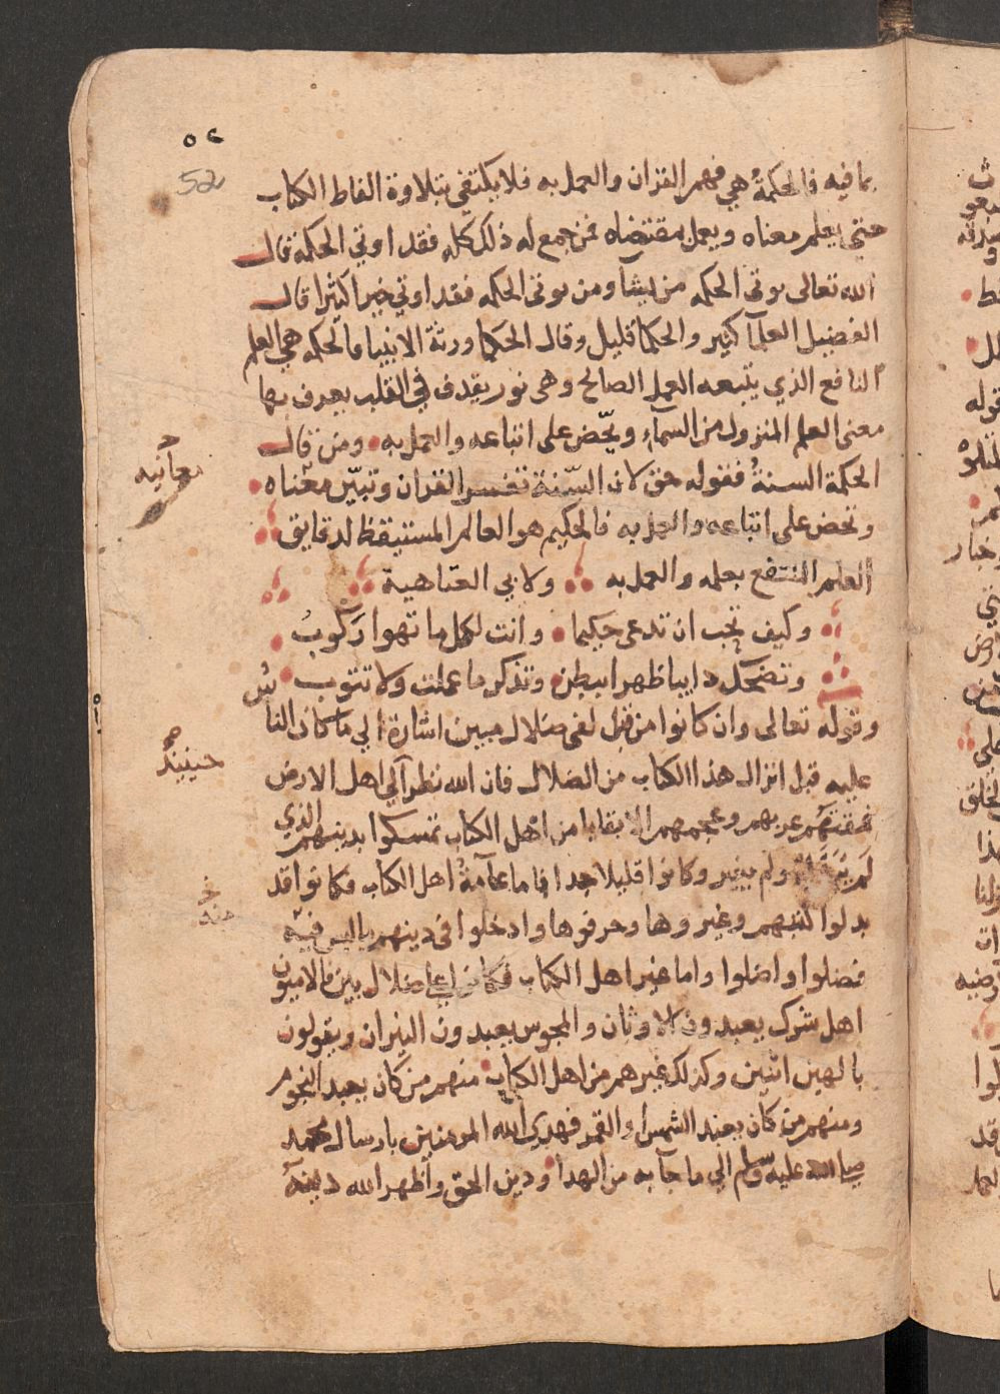 ٥٢
52
بما فيه فالحكمة هي فهم القران والعمل به فلا يكتفي بتلاوة الفاظ الكتاب
حتى يعلم معناه ويعمل بمقتضاه فمن جمع له ذلك كله فقد اوتي الحكمة قال
الله تعالى يوتى الحكمه من يشآ ومن يوتى الحكمه فقد اوتي خيرا كثيرا قال
الفضيل العلمآ كثير والحكما قليل وقال الحكما ورثة الانبيا فالحكمه هي العلم
النافع الذي يتبعه العمل الصالح وهي نور يقذف في القلب يعرف بها
معنى العلم المنزول من السمآء ويحّض على اتباعه والعمل به ومن قال
الحكمة السنةُ فقوله حق لان السّنة تفسر القران وتبيّن معْناه
معانيه
وتحض على اتباعه والعمل به فالحكيم هو العالم المستيقظ لدقايق
العلم المنتفع بعلمه والعمل به ولابي العتاهية
وكيف تحب ان تدعى حكيما وانت لكل ما تهوا رَكوبُ
وتضحك دايبا ظهرا لبطن وتذكر ما عملت ولا تتوب
وقوله تعالى وان كانوا من قبل لفي ضلال مبين اشارة الي ما كان النا س
عليه قبل انزال هذا الكتاب من الضلال فان الله نظر الي اهل الارض
حينيذٍ
فمقتهم عربهم وعجمهم الا بقايا من اهل الكتاب تمسكوا بدينهم الذي
لم ولم يغير وكانوا قليلا جدا فاما عآمة اهل الكتاب فكانوا قد
منه
بدلوا كتبهم وغيروها وحرفوها وادخلوا في دينهم ما ليس فيه
فضلوا واضلوا واما غير اهل الكتاب فكانوا علي ضلال بين فالاميون
اهل شرك يعبدون الاوثان والمجوس يعبدون النيران ويقولون
بالهين اثنين وكذلك غيرهم من اهل الكتاب منهم من كان يعبد النجوم
ومنهم من كان يعبد الشمس والقمر فهدي الله المومنين بارسال محمد
صلى الله عليه وسلم الي ما جآ به من الهدا ودين الحق واظهر الله دينهُ